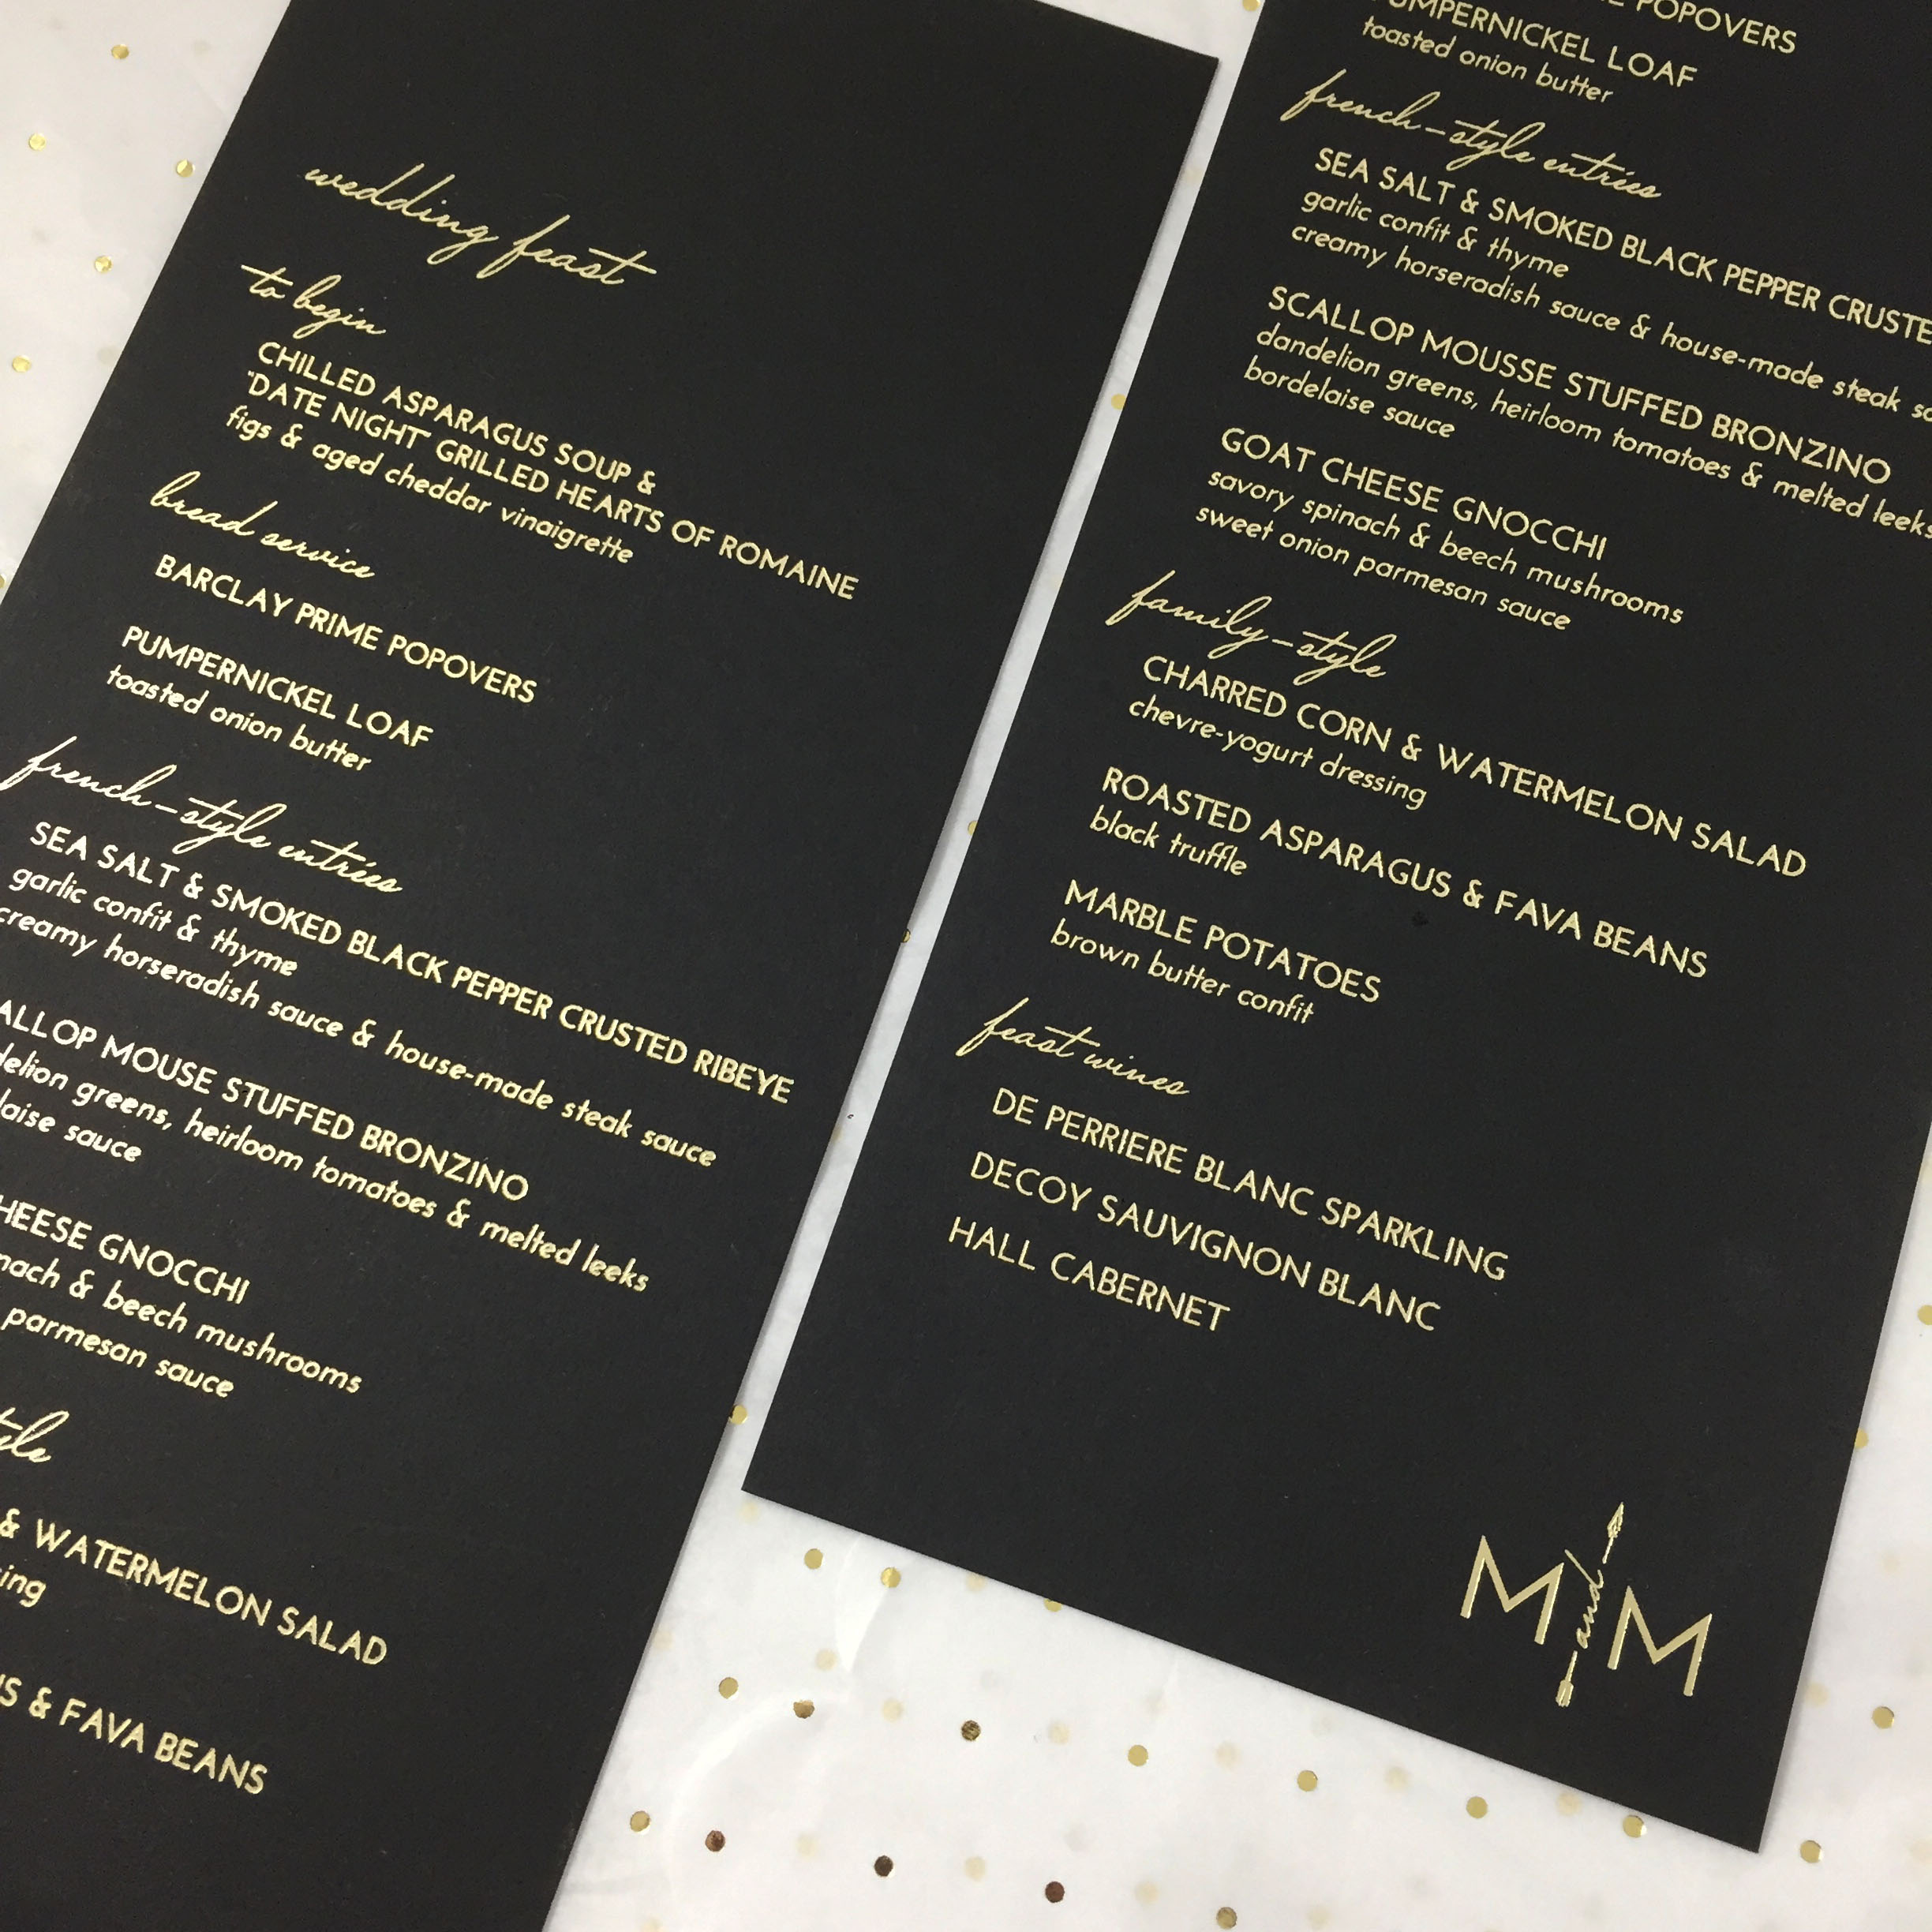 wedding feast
to begin
CHILLED ASPARAGUS SOUP &
"DATE NIGHT" GRILLED HEARTS OF ROMAINE
figs & aged cheddar vinaigrette
bread service
BARCLAY PRIME POPOVERS
PUMPERNICKEL LOAF
toasted onion butter
french-style entrées
SEA SALT & SMOKED BLACK PEPPER CRUSTED RIBEYE
garlic confit & thyme
creamy horseradish sauce & house-made steak sauce
ALLOP MOUSE STUFFED BRONZINO
delion greens, heirloom tomatoes & melted leeks
laise sauce
HEESE GNOCCHI
nach & beech mushrooms
parmesan sauce
tyle
& WATERMELON SALAD
ing
US & FAVA BEANS
POPOVERS
PUMPERNICKEL LOAF
toasted onion butter
french-style entrées
SEA SALT & SMOKED BLACK PEPPER CRUSTE
garlic confit & thyme
creamy horseradish sauce & house-made steak sa
SCALLOP MOUSSE STUFFED BRONZINO
dandelion greens, heirloom tomatoes & melted leeks
bordelaise sauce
GOAT CHEESE GNOCCHI
savory spinach & beech mushrooms
sweet onion parmesan sauce
family-style
CHARRED CORN & WATERMELON SALAD
chevre-yogurt dressing
ROASTED ASPARAGUS & FAVA BEANS
black truffle
MARBLE POTATOES
brown butter confit
feast wines
DE PERRIERE BLANC SPARKLING
DECOY SAUVIGNON BLANC
HALL CABERNET
M and M